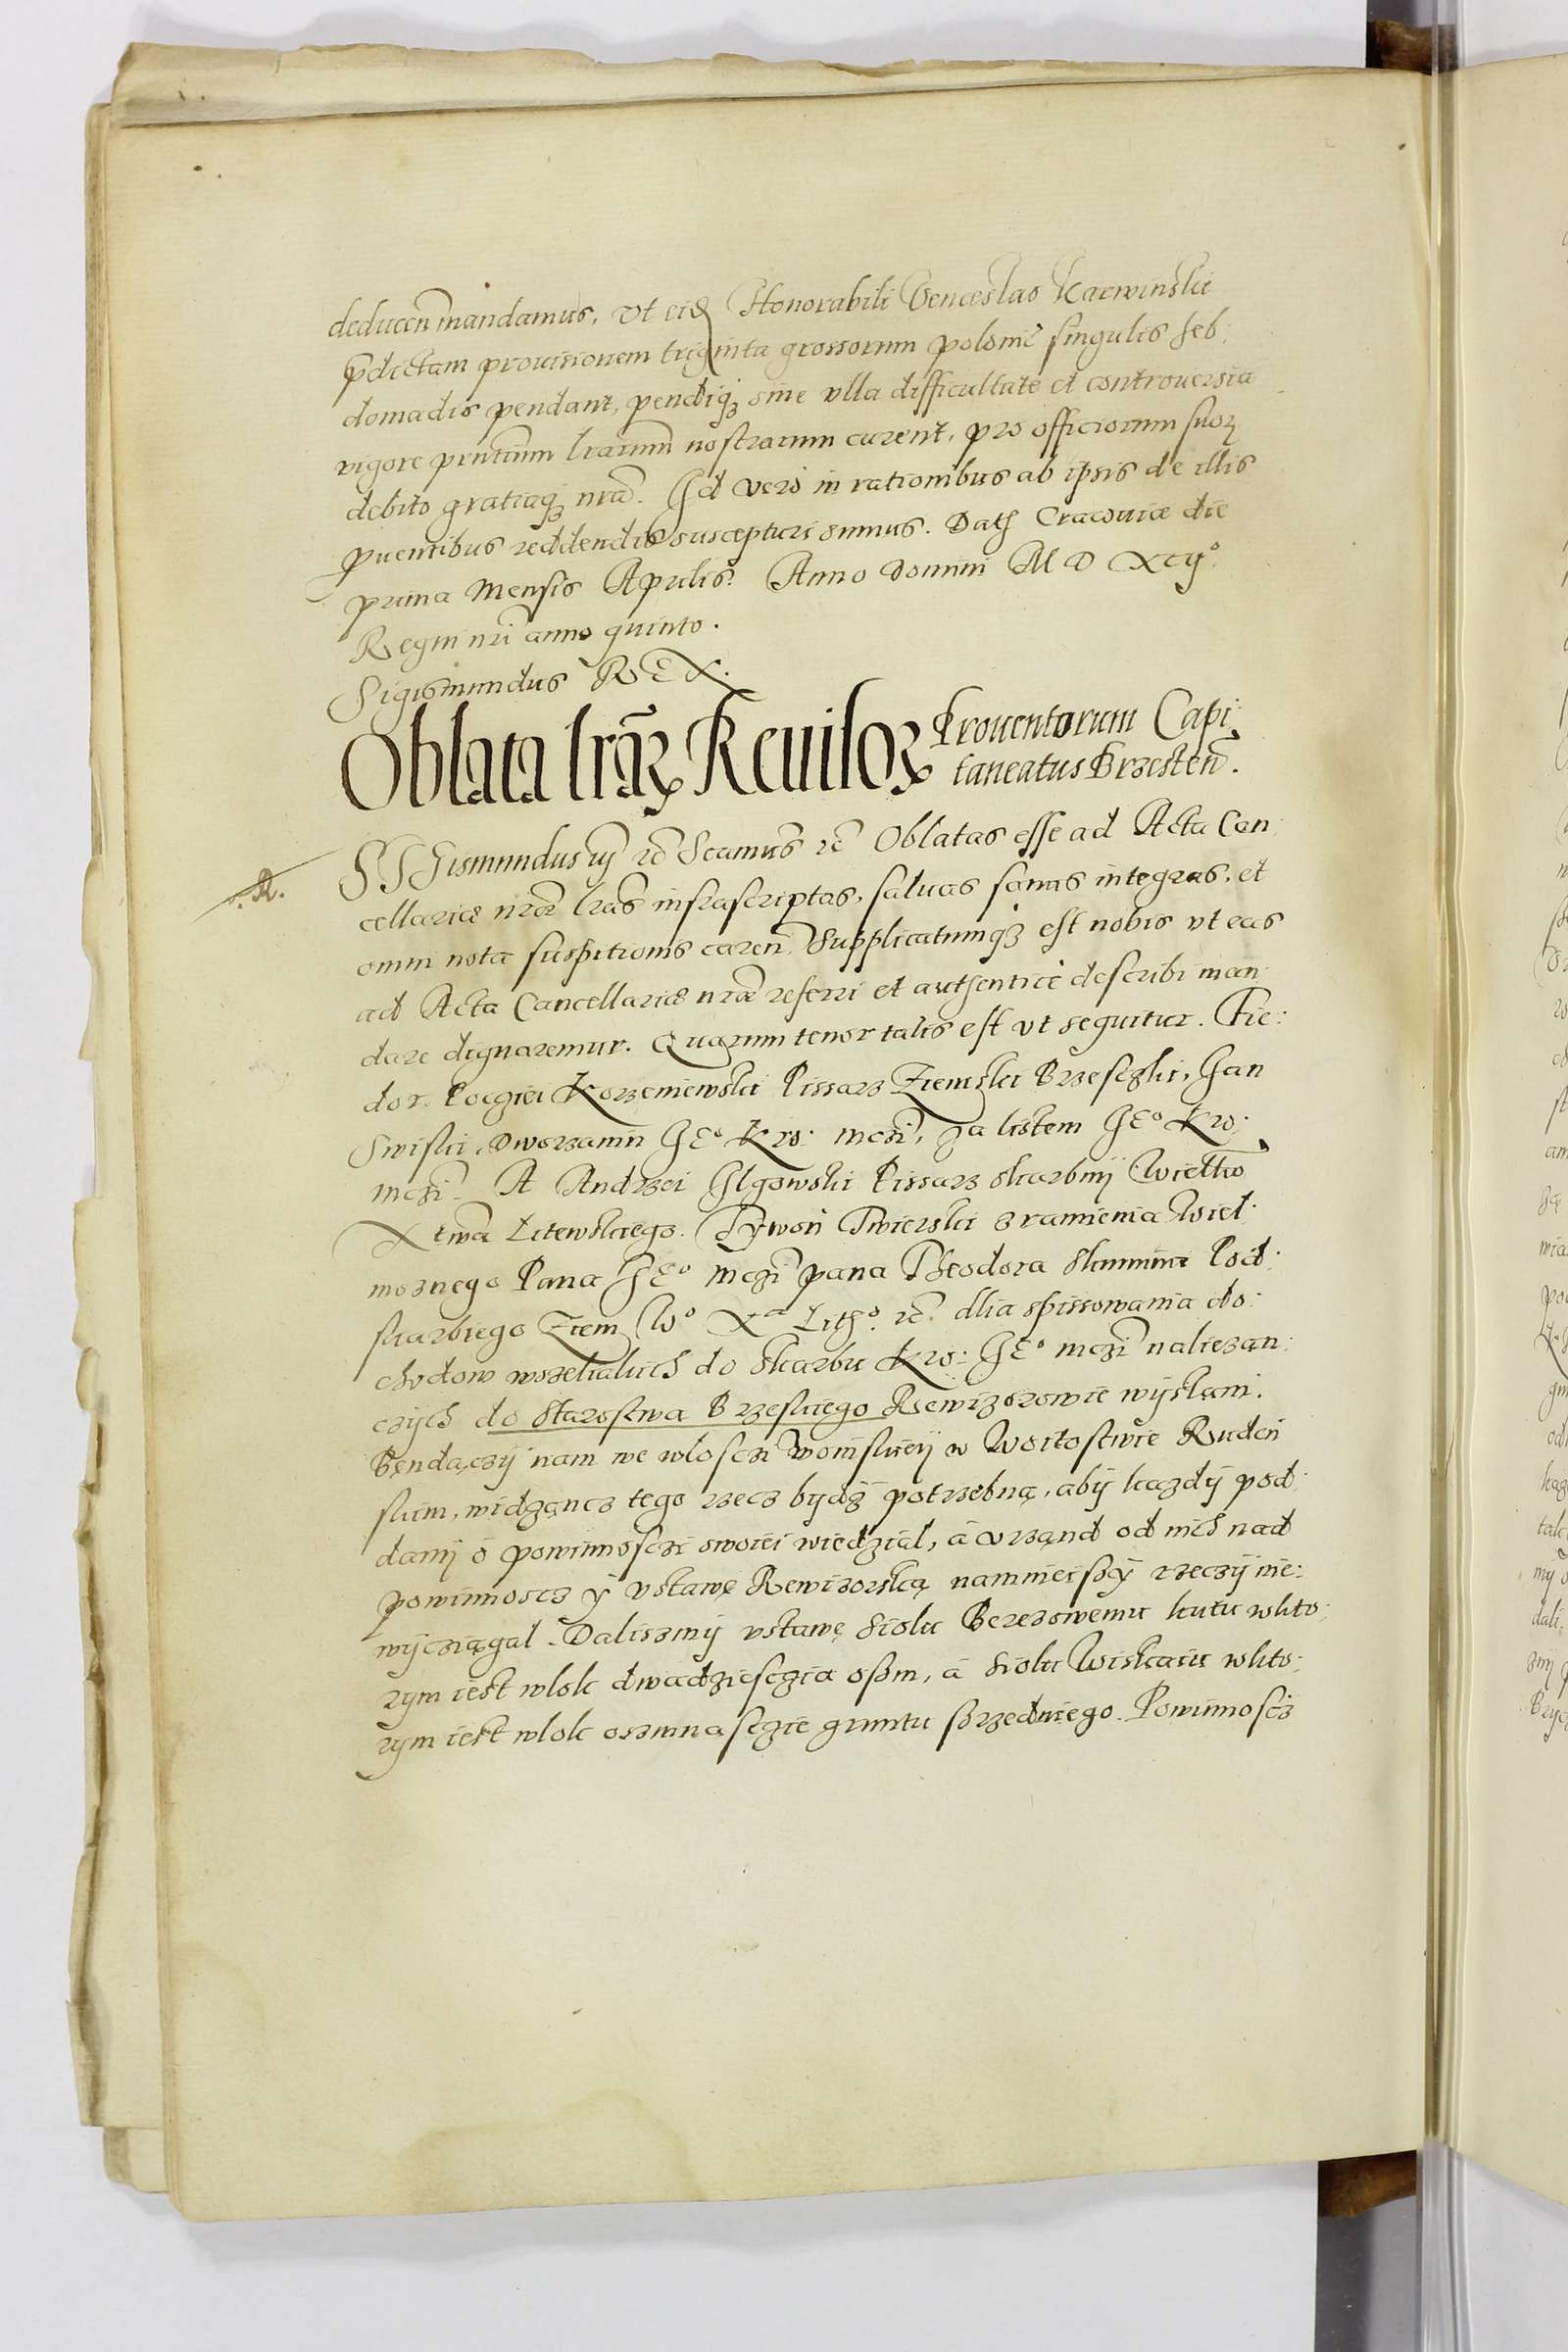 deducen̄ mandamus, Vt eid Honorabili Venceslao Karwinski
p̄dictam prouisionem triginta grossorum polonic̄ singulis heb:
domadis pendant, pendiq; sine vlla difficultate et controuersia
vigore pn̄tium lr̄arum nostrarum curent, pro officiorum suoꝝ
debito gratiaq; nr̄a. Id vero in rationibus ab ipsis de illis
ꝓuentibus reddendis suscepturi sumus. Dat̄ Cracouiæ die
prima Mensis Aprilis. Anno Domini M D XCij°
Regni nr̄i anno quinto.
Sigismundus REX.
Oblata lr̄aꝝ Reuisoꝝ Prouentorum Capi:
taneatus Brzesten̄.
.R.
SIGismundus iij rc̄ Scamus rc̄ Oblatas esse ad Acta Can:
cellariæ nr̄ae lr̄as infrascriptas, saluas sanas integras, et
omni nota suspitionis caren̄. Supplicatumq; est nobis vt eas
ad Acta Cancellariæ nr̄æ referri et authentice describi man:
dare dignaremur. Quarum tenor talis est vt sequitur. Fie:
dor Pocziei Korzeniewski Pissarz Ziemski Brzesczki, Jan
Swiski, Dworzanin JE° Kro: mczi, za listem JE° Kro:
mczi. A Andrzei Ilgowski Pissarz skarbnij Wielkiō
Xtwa Litewskiego. Tywon Twierski z ramienia Wiel:
moznego Pana JE° mczi pana Theodora Skumina Pod:
skarbiego Ziem W° Xa Lith° rc̄. dlia spissowania do:
chodow wszeliakich do skarbu Kro: JE° mczi naliezan:
czych do Starostwa Brzeskiego Rewizorowie wysłani.
Bendączij nam we włosczi Woinskieij w Woitostwie Ruden
skim, widzącz tego rzecz bydz potrzebną, abij kazdij pod:
danij o powinnosczi swoiei wiedział, a vrzand od nich nad
powinnoscz y vstawę Rewizorską namnieiszy rzeczij nie:
wycziągal. Daliszmij vstawę siołu Berezowemu kutu wkto:
rym iest włok dwadziesczia osm, a siołu Wiskaiu wkto:
rym iest włok oszmnasczie gruntu szrzedniego. Powinnoscz